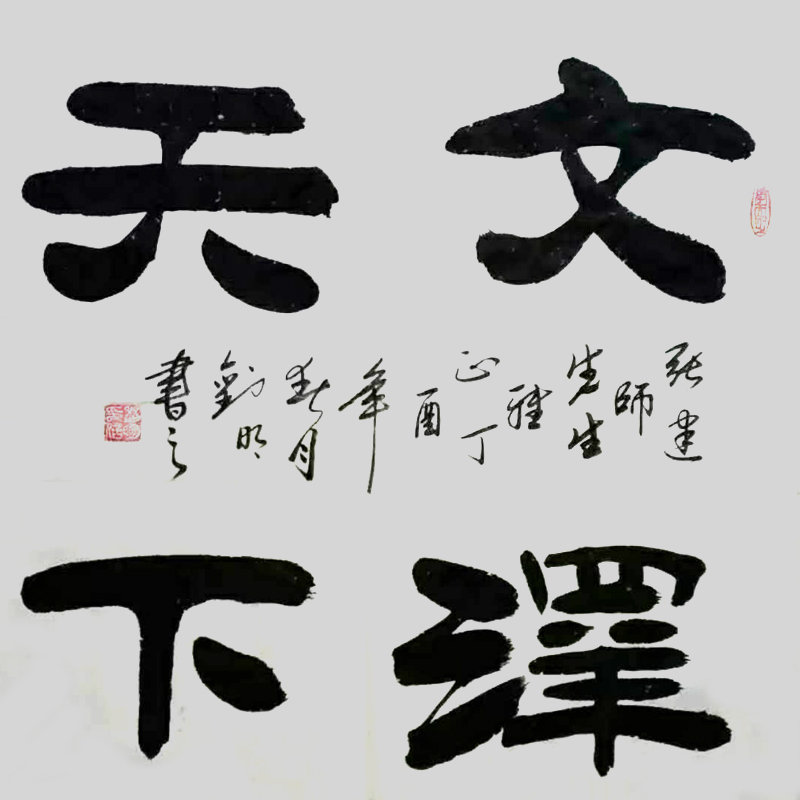 文澤
天下
张建
師
先生
雅
正丁
酉
年
春月
劉明
書之